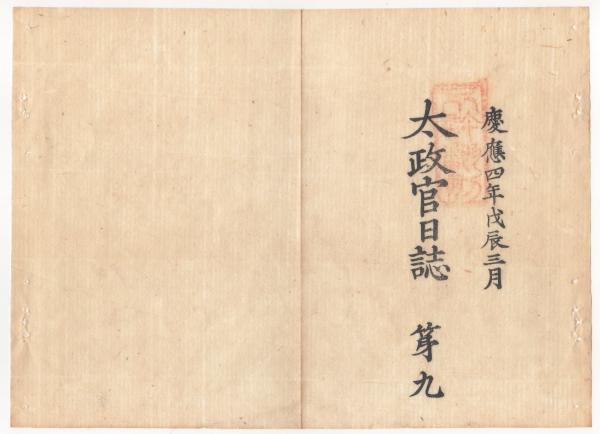 慶應四年戊辰三月
太政官日誌 第九